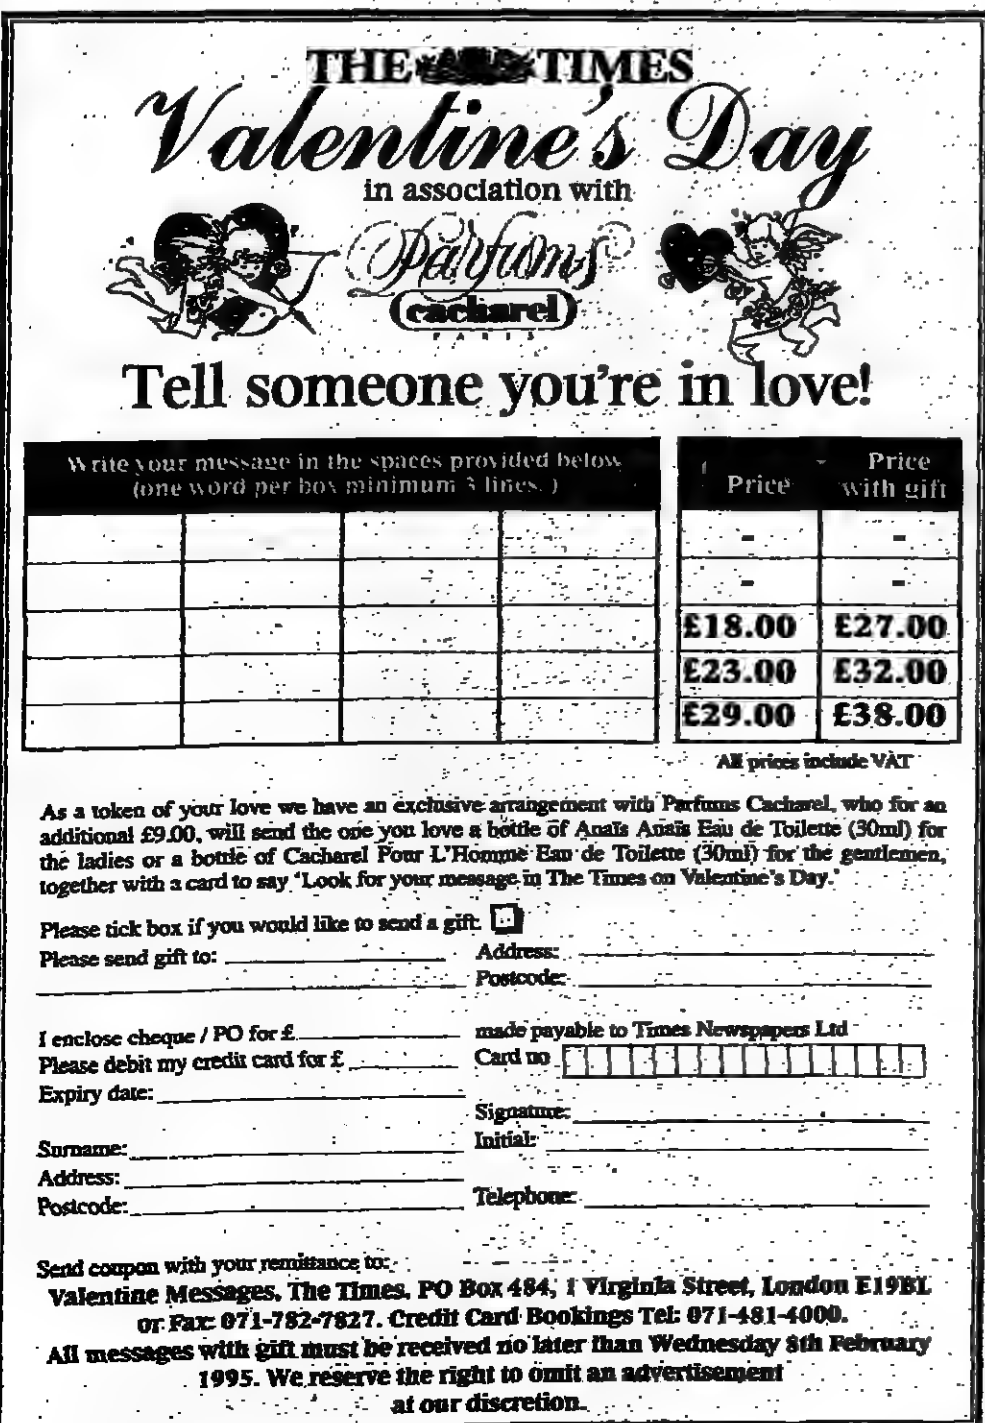 THE TIMES
Valentine's Day
in association with
Parfums
cacharel
PARIS
Tell someone you're in love!
Write your message in the spaces provided below
(one word per box minimum 3 lines. )
Price
Price
with gift
- -
- -
£18.00 £27.00
£23.00 £32.00
£29.00 £38.00
All prices include VAT
As a token of your love we have an exclusive arrangement with Parfums Cacharel, who for an
additional £9.00, will send the one you love a bottle of Anaïs Anaïs Eau de Toilette (30ml) for
the ladies or a bottle of Cacharel Pour L'Homme Eau de Toilette (30ml) for the gentlemen,
together with a card to say 'Look for your message in The Times on Valentine's Day.'
Please tick box if you would like to send a gift.
Please send gift to: Address:
Postcode:
I enclose cheque / PO for £ made payable to Times Newspapers Ltd
Please debit my credit card for £ Card no
Expiry date:
Signature:
Surname: Initial:
Address:
Postcode: Telephone:
Send coupon with your remittance to:
Valentine Messages, The Times, PO Box 484, 1 Virginia Street, London E19BL
or Fax: 071-782-7827. Credit Card Bookings Tel: 071-481-4000.
All messages with gift must be received no later than Wednesday 8th February
1995. We reserve the right to omit an advertisement
at our discretion.